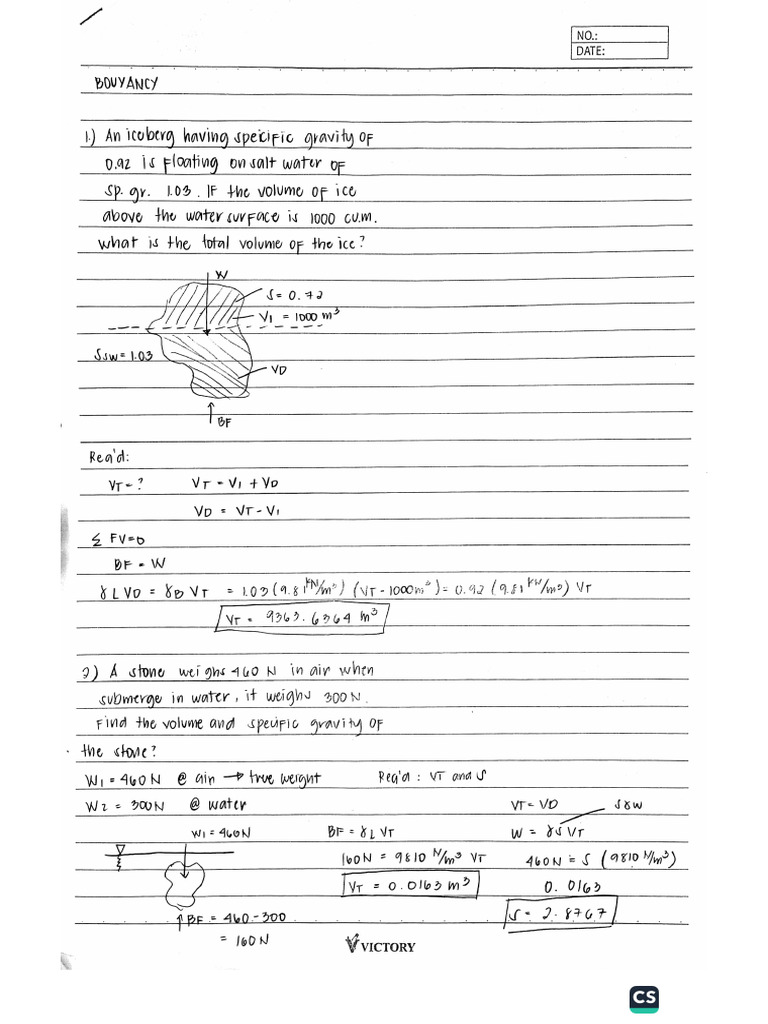 NO.:
DATE:
BOUYANCY
1.) An iceberg having speicific gravity of
0.92 is floating on salt water of
sp. gr. 1.03. If the volume of ice
above the water surface is 1000 cu.m.
what is the total volume of the ice?
W
S = 0.72
V1 = 1000 m³
Ssw = 1.03
VD
BF
Req'd:
VT = ? VT = V1 + VD
VD = VT - V1
Σ FV = 0
BF = W
γL VD = γB VT = 1.03 (9.81 kN/m³) (VT - 1000m³) = 0.92 (9.81 kN/m³) VT
VT = 9363.6364 m³
2) A stone weighs 460 N in air when
submerge in water, it weighs 300N.
Find the volume and specific gravity of
the stone?
W1 = 460N @ air → true weight Req'd : VT and S
W2 = 300N @ water VT = VD SγW
W1 = 460N BF = γL VT W = γS VT
160N = 9810 N/m³ VT 460N = S (9810 N/m³)
VT = 0.0163 m³ 0.0163
BF = 460 - 300 S = 2.8767
= 160N
VICTORY
CS